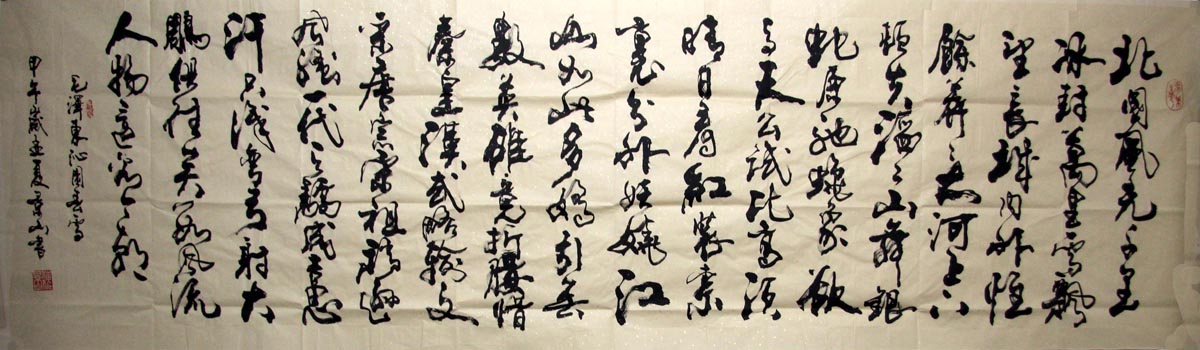 北國風光千里
冰封萬里雪飄
望長城內外惟
餘莽々大河上下
頓失滔々山舞銀
蛇原馳蠟象欲
与天公試比高須
晴日看紅裝素
裹分外妖嬈江
山如此多嬌引無
數英雄竞折腰惜
秦皇漢武略輸文
采唐宗宋祖稍遜
風騷一代天驕成吉思
汗只識彎弓射大
鵰俱往矣數風流
人物還看今朝
毛澤東沁園春雪
甲午歲孟夏山書